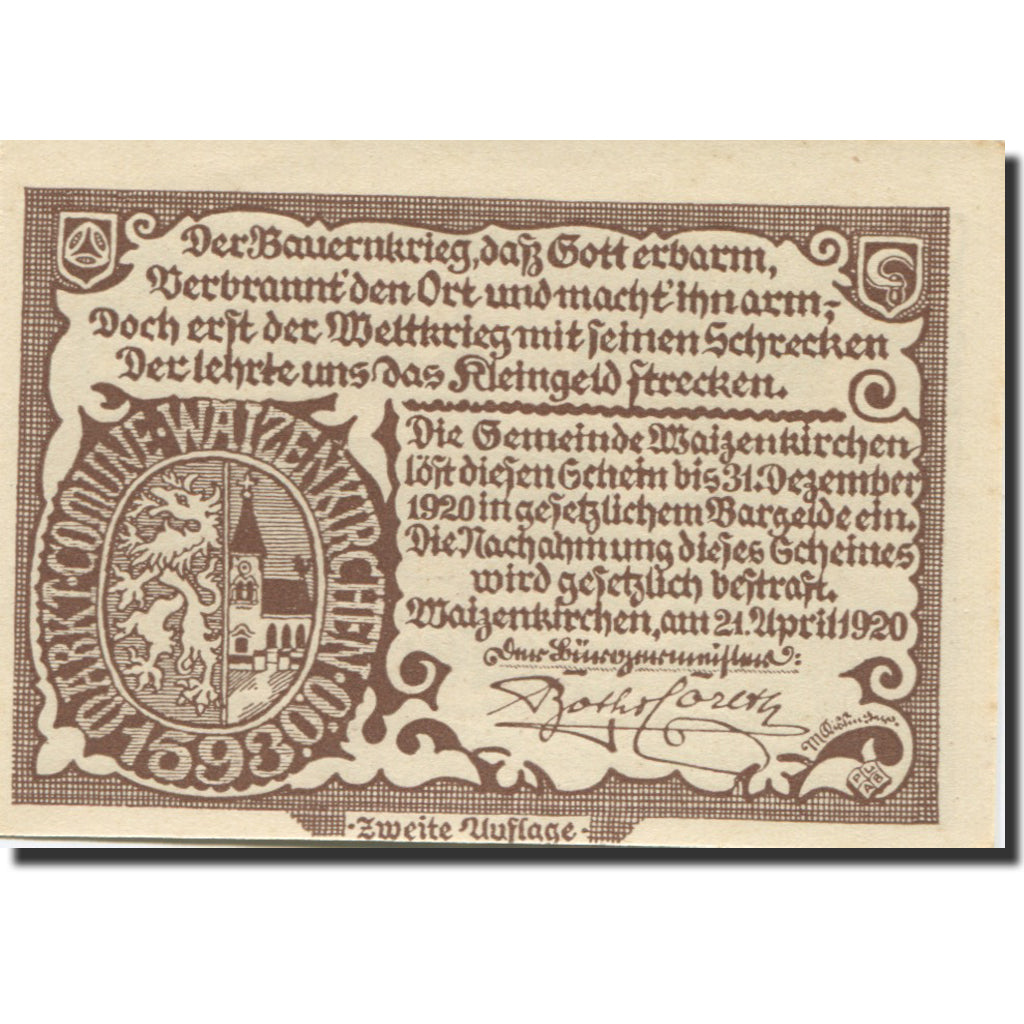 Der Bauernkrieg, daß Gott erbarm,
Verbrannt' den Ort und macht' ihn arm,-
Doch erst der Weltkrieg mit seinen Schrecken
Der lehrte uns das Kleingeld strecken.
MARKT-COMUNE·WAIZENKIRCHEN·O.Ö.
1693
Die Gemeinde Waizenkirchen
löst diesen Schein bis 31. Dezember
1920 in gesetzlichem Bargelde ein.
Die Nachahmung dieses Scheines
wird gesetzlich bestraft.
Waizenkirchen, am 21. April 1920
Der Bürgermeister:
·Zweite Auflage·